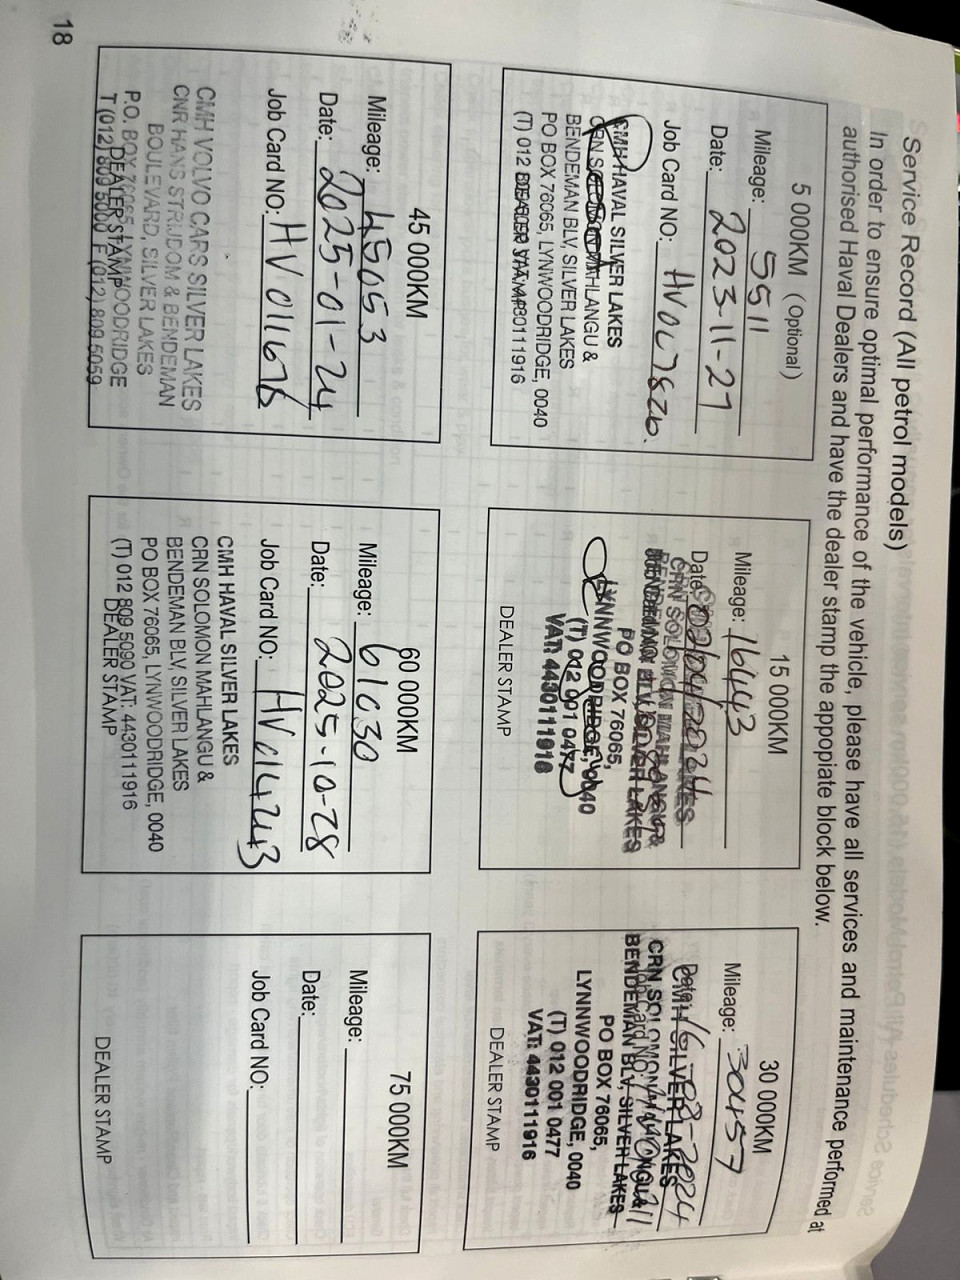 Service Record (All petrol models)
In order to ensure optimal performance of the vehicle, please have all services and maintenance performed at
authorised Haval Dealers and have the dealer stamp the appopiate block below.
5 000KM (Optional)
Mileage: 5511
Date: 2023-11-27
Job Card NO:
CMH HAVAL SILVER LAKES
CRN SOLOMON MAHLANGU &
BENDEMAN BLV, SILVER LAKES
PO BOX 76065, LYNWOODRIDGE, 0040
(T) 012 809 5090 VAT: 4430111916
DEALER STAMP
15 000KM
Mileage: 16443
Date: 02/04/2024
CRN SOLOMON MAHLANGU &
BENDEMAN BLV, SILVER LAKES
PO BOX 76065,
LYNNWOODRIDGE, 0040
(T) 012 001 0477
VAT: 4430111916
DEALER STAMP
30 000KM
Mileage: 30457
Date: 16-08-2024
CMH SILVER LAKES
CRN SOLOMON MAHLANGU &
Job Card NO:
BENDEMAN BLV, SILVER LAKES
PO BOX 76065,
LYNNWOODRIDGE, 0040
(T) 012 001 0477
VAT: 4430111916
DEALER STAMP
45 000KM
Mileage: 45053
Date: 2025-01-24
Job Card NO: HV011676
CMH VOLVO CARS SILVER LAKES
CNR HANS STRIJDOM & BENDEMAN
BOULEVARD, SILVER LAKES
P.O. BOX 76065 LYNWOODRIDGE
DEALER STAMP
T (012) 809 5000 F (012) 809 5059
60 000KM
Mileage: 61030
Date: 2025-10-28
Job Card NO: HV014243
CMH HAVAL SILVER LAKES
CRN SOLOMON MAHLANGU &
BENDEMAN BLV, SILVER LAKES
PO BOX 76065, LYNWOODRIDGE, 0040
(T) 012 809 5090 VAT: 4430111916
DEALER STAMP
75 000KM
Mileage:
Date:
Job Card NO:
DEALER STAMP
18